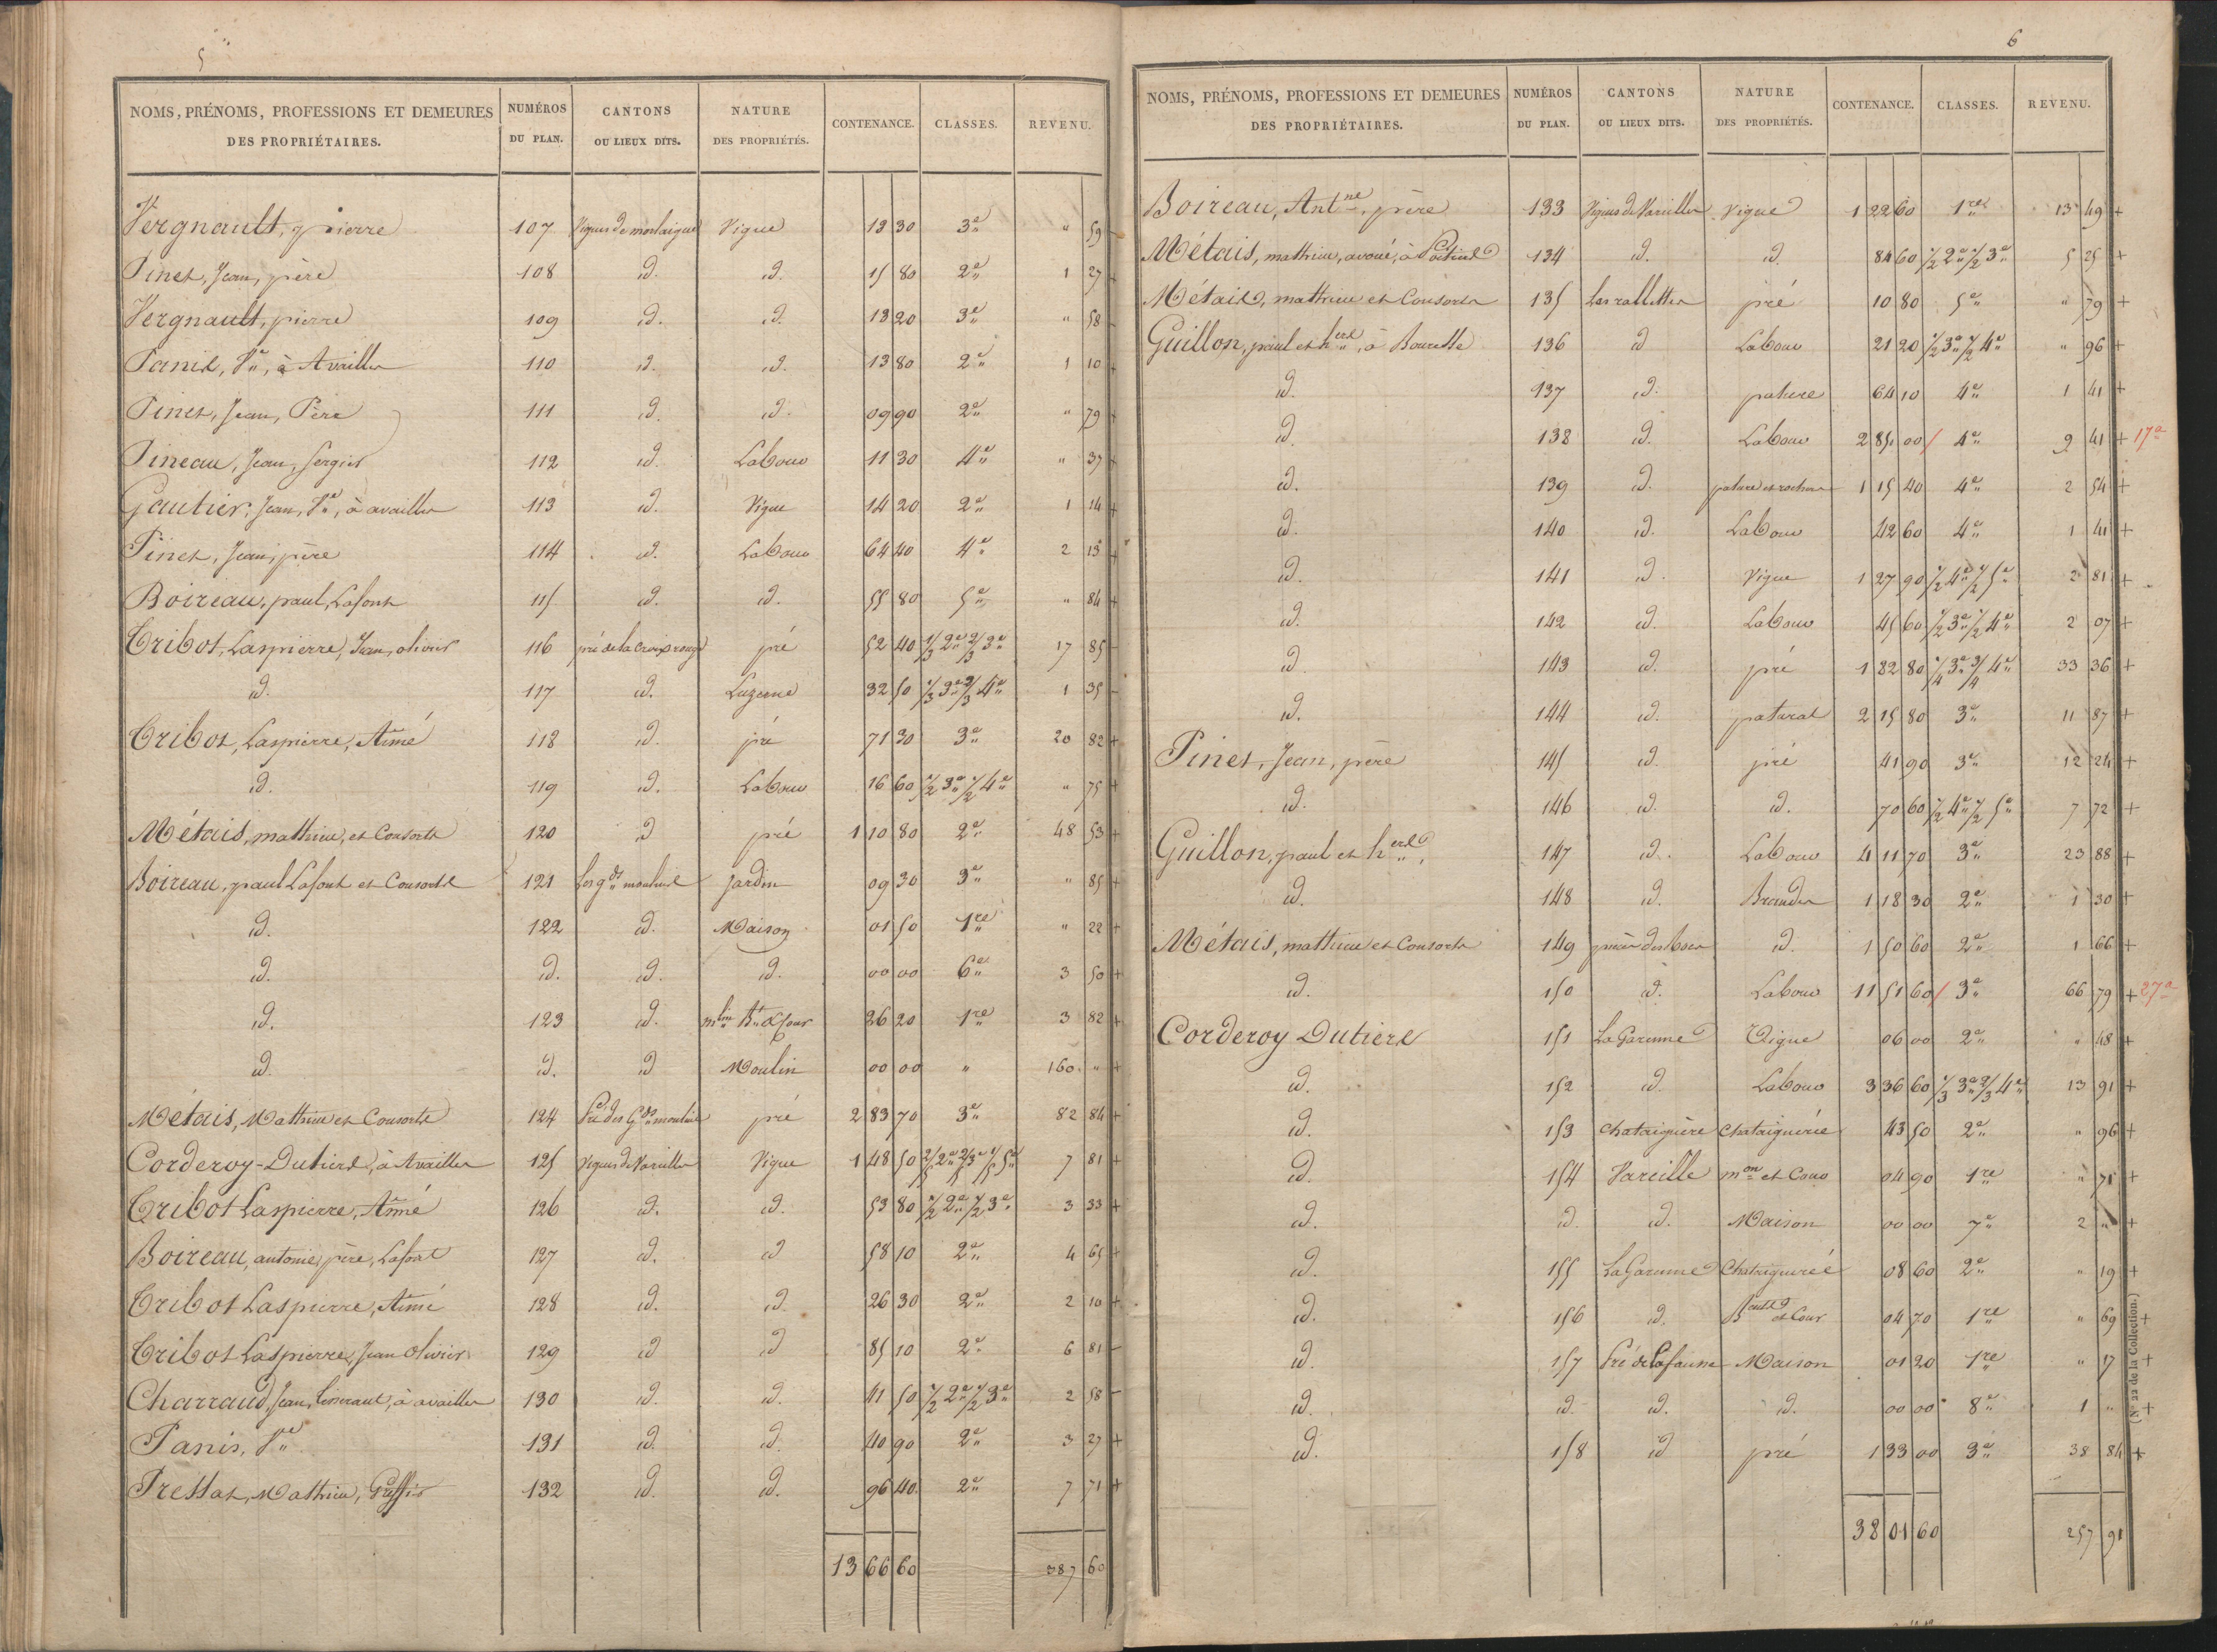 5
NOMS, PRÉNOMS, PROFESSIONS ET DEMEURES DES PROPRIÉTAIRES. NUMÉROS DU PLAN. CANTONS OU LIEUX DITS. NATURE DES PROPRIÉTÉS. CONTENANCE. CLASSES. REVENU.
Vergnault, pierre 107 Vignes de Vigne 13 30 3e " 59
Pinet, Jean, père 108 id. id. 15 80 2e 1 27 +
Vergnault, pierre 109 id. id. 13 20 3e " 58
Panis, Ve, à Availles 110 id. id. 13 80 2e 1 10 +
Pinet, Jean, Père 111 id. id. 09 90 2e " 79 +
Pineau, Jean, Sergier 112 id. Labour 11 30 4e " 37 +
Gautier, Jean, Ve, à availles 113 id. Vigne 14 20 2e 1 14 +
Pinet, Jean, père 114 id. Labour 64 40 4e 2 13 +
Boireau, paul, Lafont 115 id. id. 55 80 5e " 84 +
Tribot, Laspierre, Jean, olivier 116 pré de la Croix rouge pré 52 40 1/3 2e 2/3 3e 17 85 -
id. 117 id. Luzerne 32 50 1/3 3e 2/3 4e 1 35 -
Tribot, Laspierre, Aimé 118 id. pré 71 30 3e 20 82 +
id. 119 id. Labour 16 60 1/2 3e 1/2 4e " 75 +
Métais, mathieu, et Consorts 120 id pré 1 10 80 2e 48 53 +
Boireau, paul Lafont et Consorts 121 Les gds moulins Jardin 09 30 3e " 85 +
id. 122 id. Maison 01 50 1re " 22 +
id. id. id. id. 00 00 6e 3 50 +
id. 123 id. mlin Bt & Cour 26 20 1re 3 82 +
id. id. id Moulin 00 00 " 160 " +
Métais, Mathieu et Consorts 124 Pré des Gds moulins pré 2 83 70 3e 82 84 +
Corderoy-Dutiers, à Availles 125 Vignes de Vareilles Vigne 1 48 50 2/5 2e 2/5 3e 1/5 5e 7 81 +
Tribot Laspierre, Aimé 126 id. id. 53 80 1/2 2e 1/2 3e 3 33 +
Boireau, antoine, père, Lafont 127 id. id 58 10 2e 4 65 +
Tribot Laspierre, Aimé 128 id. id. 26 30 2e 2 10 +
Tribot Laspierre, Jean Olivier 129 id id 85 10 2e 6 81 -
Charraud, Jean, à availles 130 id. id. 41 50 1/2 2e 1/2 3e 2 58 -
Panis, Ve 131 id. id. 40 90 2e 3 27 +
Pressac, Mathieu, 132 id. id. 96 40 2e 7 71 +
13 66 60 387 60
6
NOMS, PRÉNOMS, PROFESSIONS ET DEMEURES DES PROPRIÉTAIRES. NUMÉROS DU PLAN. CANTONS OU LIEUX DITS. NATURE DES PROPRIÉTÉS. CONTENANCE. CLASSES. REVENU.
Boireau, Antne, père 133 Vignes de Vareilles Vigne 1 22 60 1re 13 49 +
Métais, mathieu, avoué, à Poitiers 134 id. id. 84 60 1/2 2e 1/2 3e 5 25 +
Métais, mathieu et Consorts 135 Les rallettes pré 10 80 5e " 79 +
Guillon, paul et hers, à Bouresse 136 id Labour 21 20 1/2 3e 1/2 4e " 96 +
id. 137 id. pature 64 10 4e 1 41 +
id. 138 id. Labour 2 85 00 / 4e 9 41 + 17a
id. 139 id. pature et rochers 1 15 40 4e 2 54 +
id. 140 id. Labour 42 60 4e 1 41 +
id. 141 id. Vigne 1 27 90 1/2 4e 1/2 5e 2 81 +
id. 142 id. Labour 45 60 1/2 3e 1/2 4e 2 07 +
id. 143 id. pré 1 82 80 1/4 3e 3/4 4e 33 36 +
id. 144 id. patural 2 15 80 3e 11 87 +
Pinet, Jean, père 145 id. pré 41 90 3e 12 24 +
id. 146 id. id. 70 60 1/2 4e 1/2 5e 7 72 +
Guillon, paul et hers 147 id. Labour 4 11 70 3e 23 88 +
id. 148 id. Brandes 1 18 30 2e 1 30 +
Métais, mathieu et Consorts 149 id. 1 50 60 2e 1 66 +
id. 150 id. Labour 11 51 60 / 3e 66 79 + 27a
Corderoy Dutiers 151 La Garenne Vigne 06 00 2e " 48 +
id. 152 id. Labour 3 36 60 1/3 3e 2/3 4e 13 91 +
id. 153 Chataignère Chataignerée 43 50 2e " 96 +
id. 154 Vareille mon et Cour 04 90 1re " 71 +
id. id. id. Maison 00 00 7e 2 " +
id. 155 La Garenne Chataignerée 08 60 2e " 19 +
id. 156 id. et Cour 04 70 1re " 69 +
id. 157 Pré de Maison 01 20 1re " 17 +
id. id. id. id. 00 00 8e 1 " +
id. 158 id pré 1 33 00 3e 38 84 +
38 01 60 257 91
(No 22 de la Collection.)